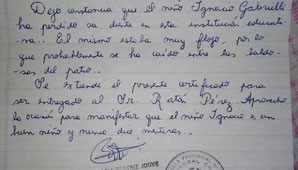 Dejo constancia que el niño Ignacio Gabrielli
ha perdido su diente en esta institución educati-
va.. El mismo estaba muy flojo, por lo
que probablemente se ha caído entre las baldo-
sas del patio..
Se extiende el presente certificado para
ser entregado al Sr. Ratón Pérez. Aprovecho
la ocasión para manifestar que el niño Ignacio es un
buen niño y nunca dice mentiras..
JOUVE